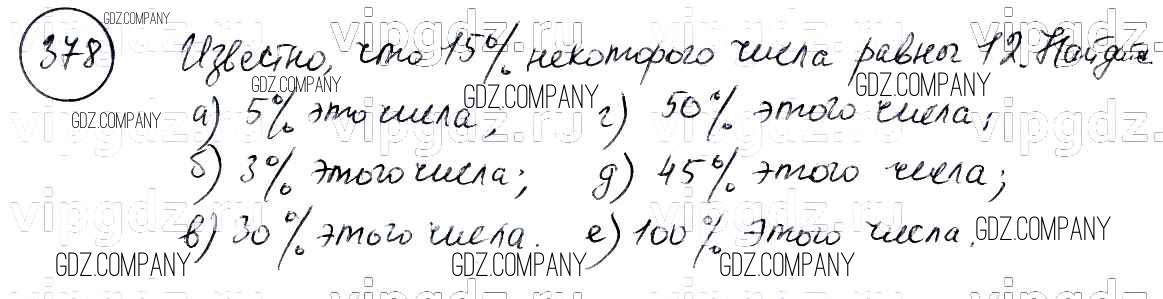 GDZ.COMPANY
vipgdz.ru vipgdz.ru vipgdz.ru
378 Известно, что 15% некоторого числа равны 12. Найдите
GDZ.COMPANY GDZ.COMPANY GDZ.COMPANY
а) 5% это числа; г) 50% этого числа;
GDZ.COMPANY
vipgdz.ru vipgdz.ru vipgdz.ru
б) 3% этого числа; д) 45% этого числа;
vipgdz.ru vipgdz.ru vipgdz.ru
в) 30% этого числа. е) 100% этого числа.
GDZ.COMPANY
GDZ.COMPANY GDZ.COMPANY GDZ.COMPANY
vipgdz.ru vipgdz.ru vipgdz.ru